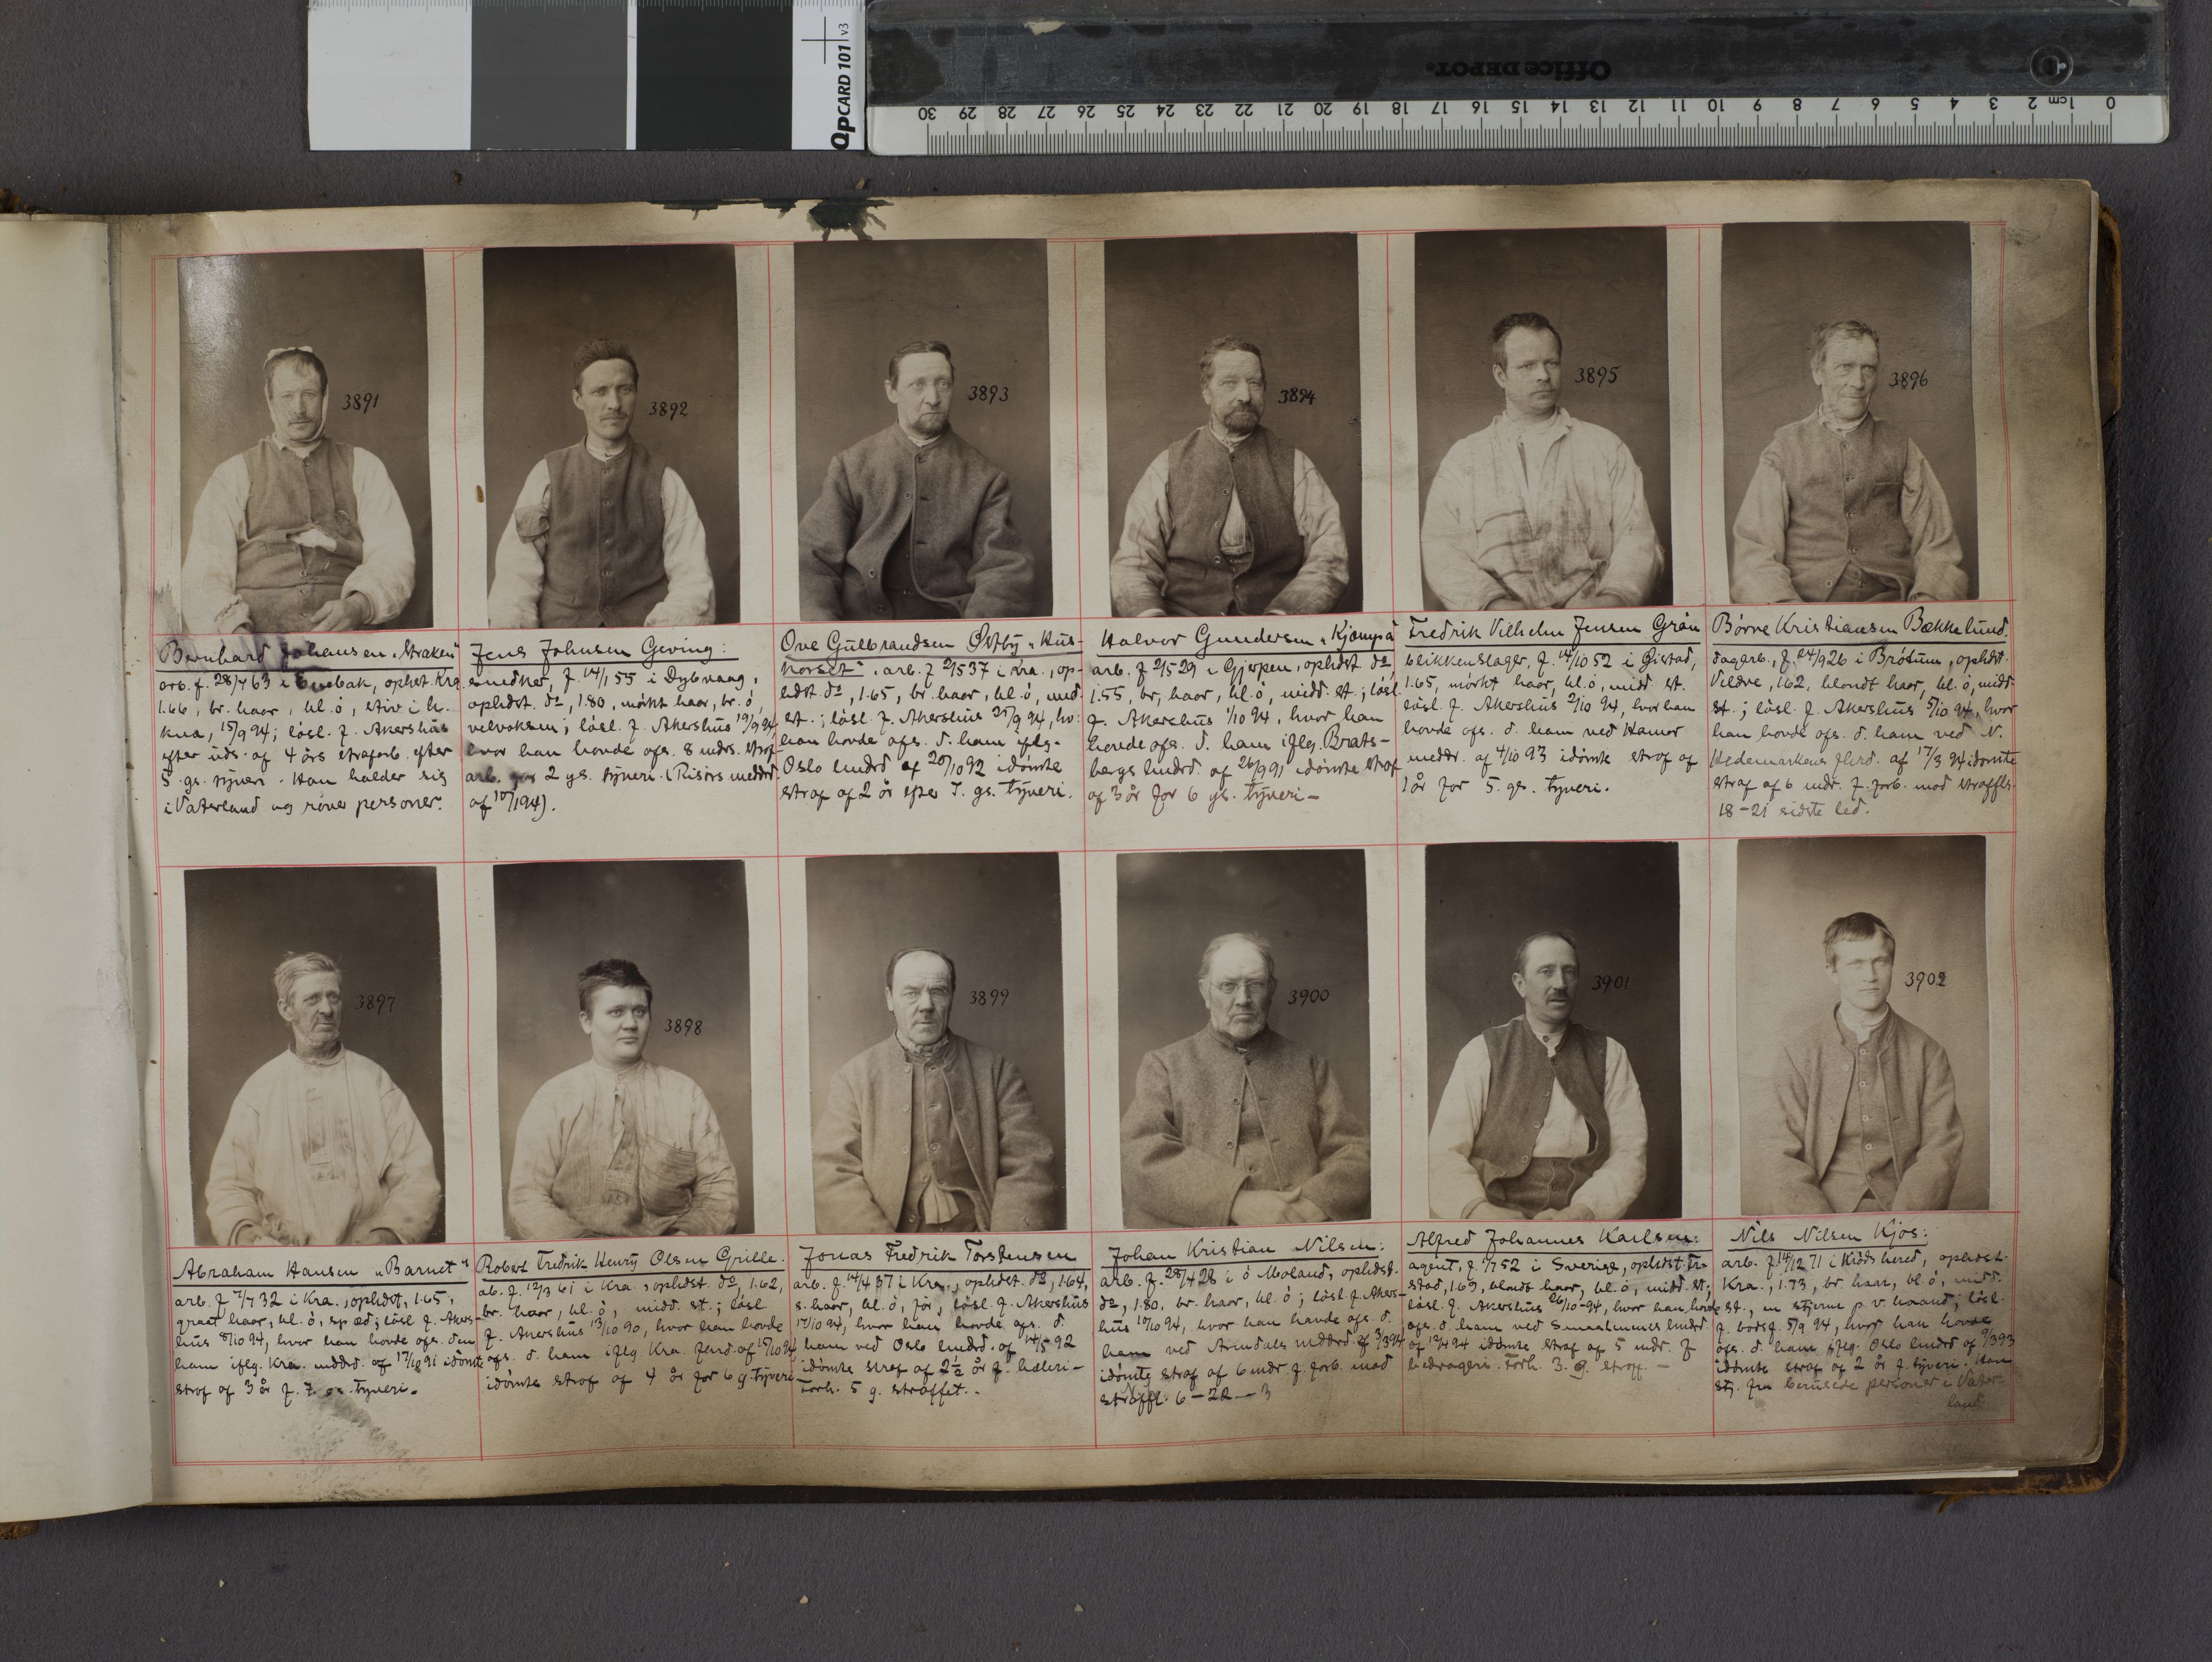 QPCARD 101 v3
Office DEPOT
30 29 28 27 26 25 24 23 22 21 20 19 18 17 16 15 14 13 12 11 10 9 8 7 6 5 4 3 2 1cm 0
3891
Bernhard Johansen „Straken"
arb. f. 28/7 63 i Enebak, ophst. Kra.
1.66, br. haar, bl. ö, stiv i h.
kna, 15/9 94; lösl. f. Akershus
efter uds. af 4 års strafarb. efter
5. gs. tyveri. Han holder sig
i Vaterland og röver personer.
3892
Jens Johnsen Geving:
smedker, f. 14/1 55 i Dybvaag,
ophdst. do, 1.80, mörkt haar, br. ö,
velvoksen; lösl. f. Akershus 19/9 94,
hvor han havde afs. 8 mdrs. straf-
arb. for 2 gs. tyveri. (Risörs meddrd.
af 10/1 94).
3893
Ove Gulbrandsen Östby „Hus-
korset". arb. f. 2/5 37 i Kra., op-
hdst. do, 1.65, br. haar, bl. ö, midd.
st.; lösl. f. Akershus 25/9 94, hv:
han havde afs. d. ham iflg.
Oslo lmdrd af 20/10 92 idömte
straf af 2 år efter 7. gs. tyveri.
3894
Halvor Gundersen „Kjæmpa"
arb. f. 2/5 29 i Gjerpen, ophdst. do,
1.55, br, haar, bl. ö, midd. st.; lösl.
f. Akershus 1/10 94, hvor han
havde afs. d. ham iflg. Brats-
bergs lmdrd. af 26/9 91 idömte straf
af 3 år for 6 gs. tyveri –
3895
Fredrik Vilhelm Jensen Grön
blikkenslager, f. 14/10 52 i Gistad,
1.65, mörkt haar, bl. ö, midd. st.
lösl. f. Akershus 2/10 94, hvor han
havde afs. d. ham ved Hamar
meddr. af 4/10 93 idömte straf af
1 år for 5. gs. tyveri.
3896
Börre Kristiansen Bækkelund.
dagarb., f. 24/9 26 i Bröttum, ophdst.
Veldre, 1.62, blondt haar, bl. ö, midd.
st.; lösl. f. Akershus 5/10 94, hvor
han havde afs. d. ham ved N.
Hedemarkens flrd. af 17/3 94 idömte
straf af 6 mdr. f. forb. mod straffls.
18 – 21 sidste led.
3897
Abraham Hansen „Barnet"
arb. f. 7/7 32 i Kra., ophdst, 1.65,
graat haar, bl. ö, sp. æd; lösl. f. Akers-
hus 8/10 94, hvor han havde afs. den
ham iflg. Kra. mddrd. af 17/10 91 idömte
straf af 3 år f. 7. gs. tyveri.
3898
Robert Fredrik Henry Olsen Grille.
ab. f. 12/3 61 i Kra., ophdst. do, 1.62,
br. haar, bl. ö, midd. st.; lösl.
f. Akershus 13/10 90, hvor han havde
afs. d. ham iflg. Kra. flrd. af 15/10 94
idömte straf af 4 år for 6 g tyveri
3899
Jonas Fredrik Torstensen
arb. f. 14/4 37 i Kra., ophdst. do, 1.64,
s. haar, bl. ö, för; lösl. f. Akershus
17/10 94, hvor han havde afs. d.
ham ved Oslo lmdrd. af 14/5 92
idömte straf af 2½ år f. heleri –
Forh. 5 g. straffet.
3900
Johan Kristian Nilsen:
arb. f. 28/4 28 i ö Moland, ophdst.
do, 1.80, br. haar, bl. ö; lösl. f. Akers-
hus 10/10 94, hvor han havde afs. d.
ham ved Arendals mddrd. af 3/3 94
idömte straf af 6 mdr. f. forb. mod
straffl. 6 – 22 – 3
3901
Alfred Johannes Karlsen:
agent, f. 7/7 52 i Sverige, ophdst. Fr.
stad, 1.69, blondt haar, bl. ö, midd. st;
lösl. f. Akershus 26/10 94, hvor han havde
afs. d. ham ved Smaalenenes lmdrd
af 12/4 94 idömte straf af 5 mdr. f
bedrageri. Forh. 3. g. straff. –
3902
Nils Nilsen Kjös:
arb. f. 14/12 71 i Kröds hered, ophdst.
Kra., 1.73, br. haar, bl. ö, midd.
st., en stjerne p. v. haand; lösl.
f. bodsf. 5/9 94, hvor han havde
afs. d. ham iflg. Oslo lmdrd af 9/3 93
idömte straf af 2 år f. tyveri. Han
stj. fra berusede personer i Vater-
land